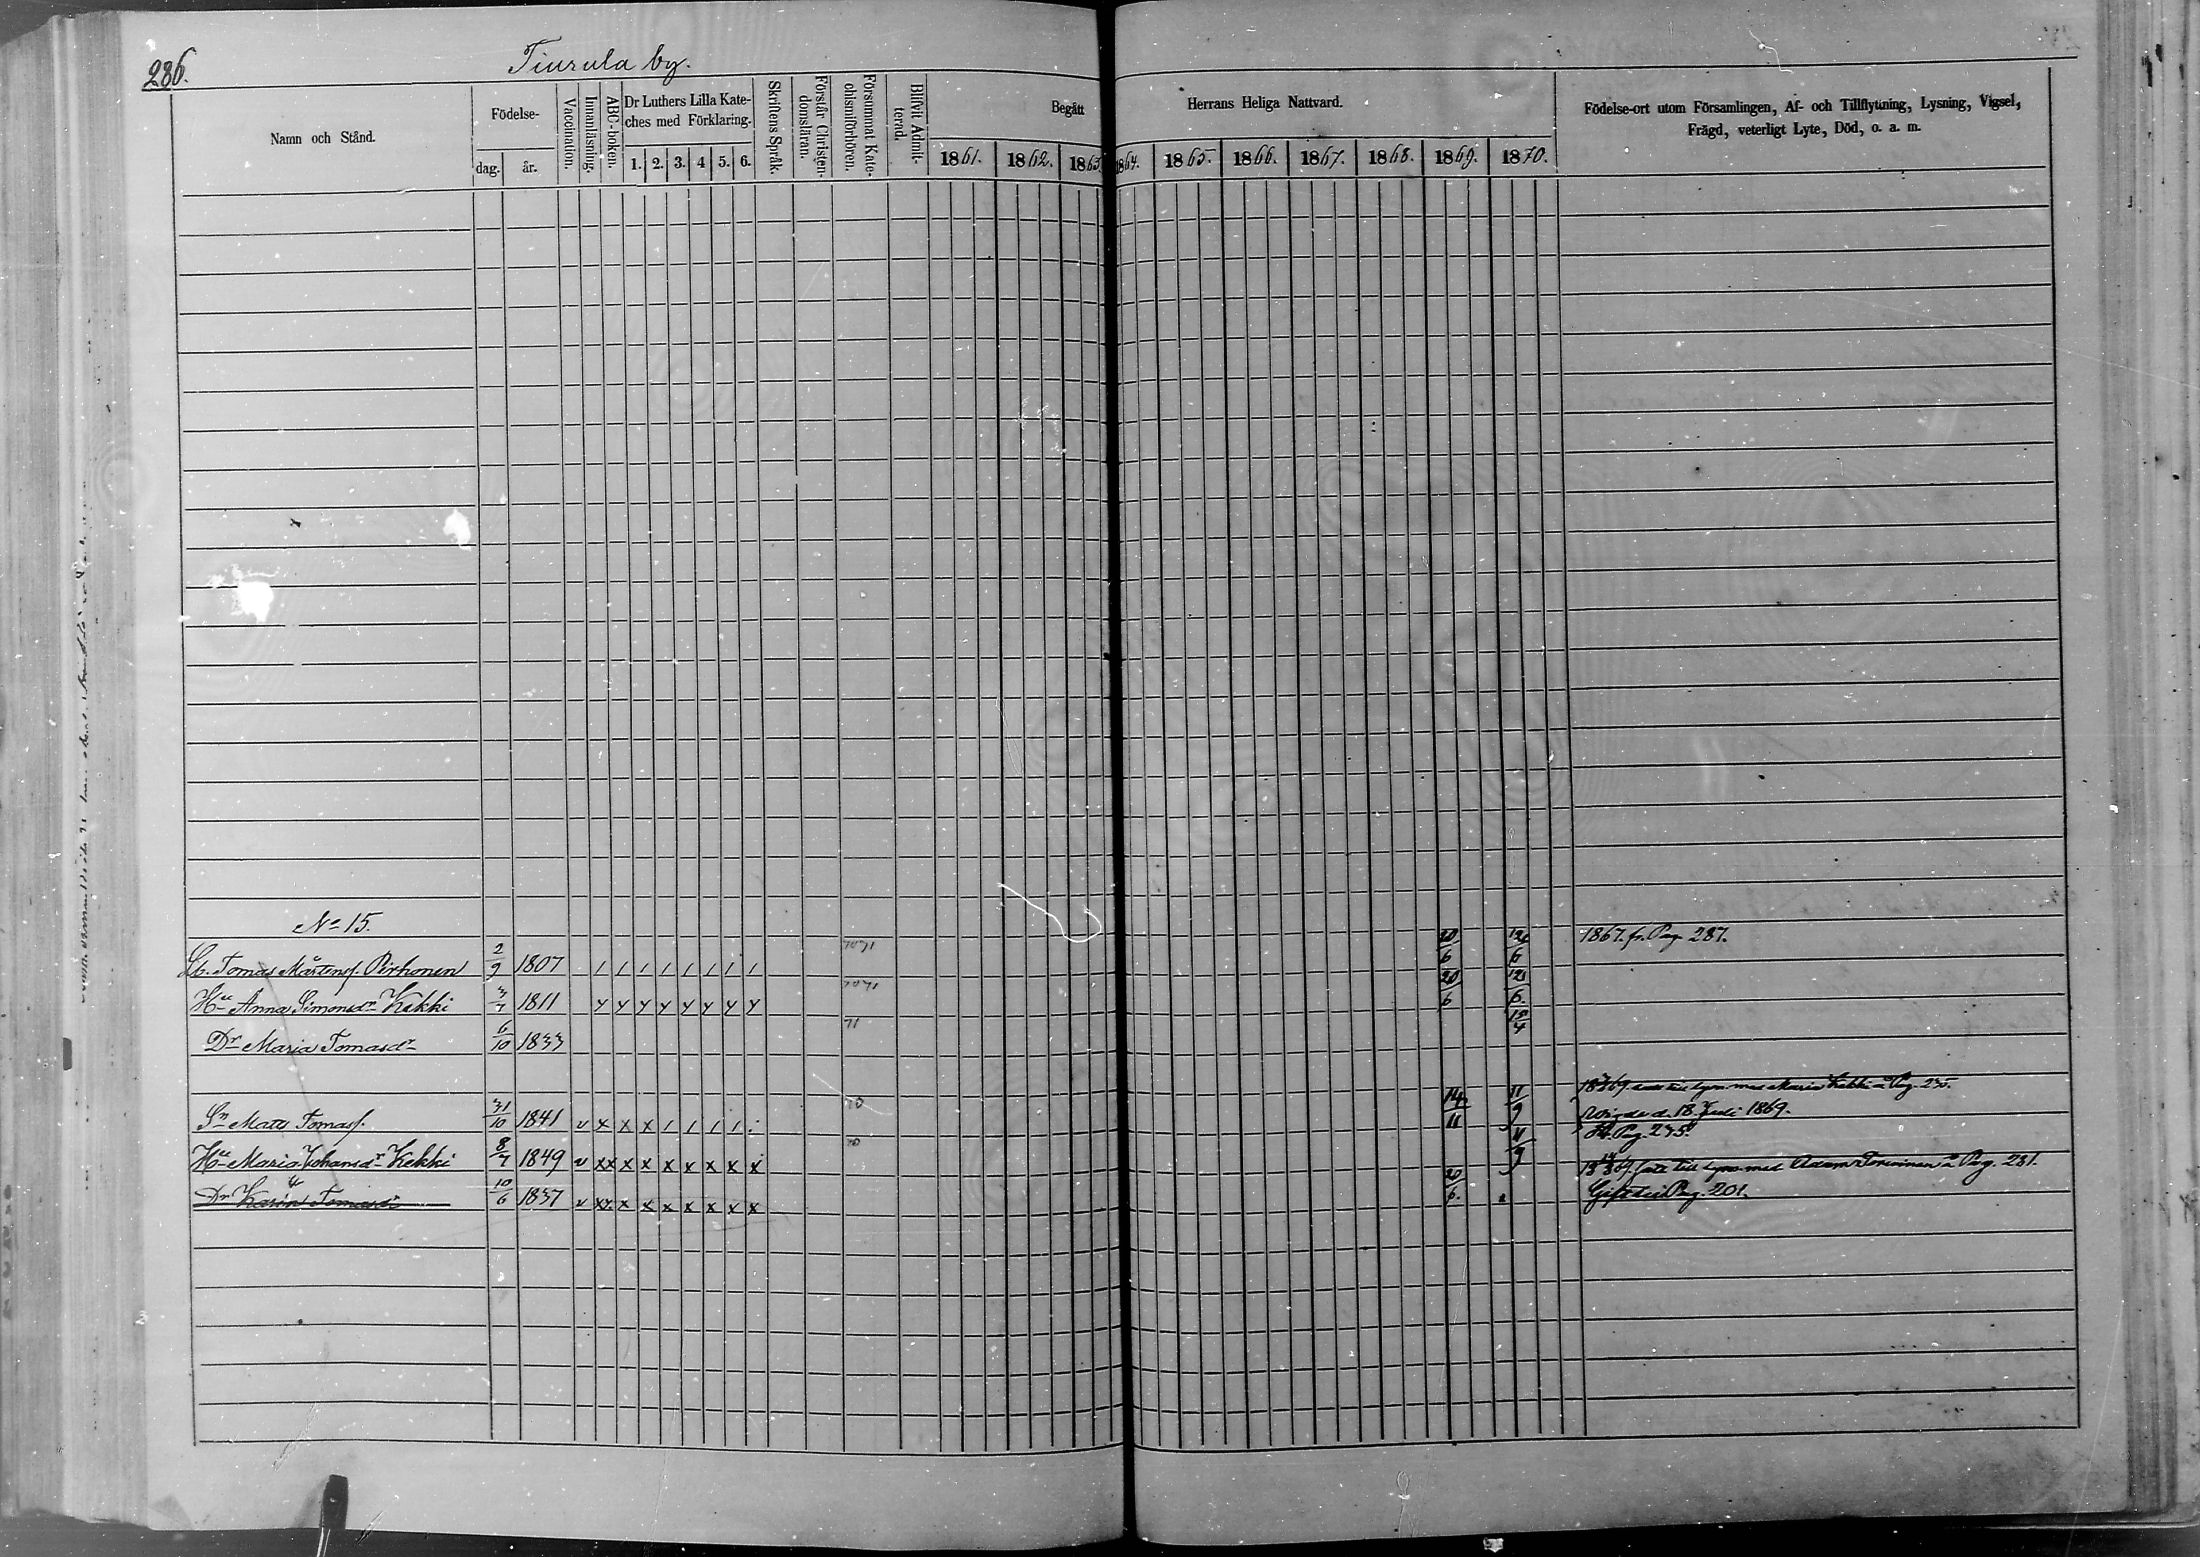 286.
Tiurula by.
Namn och Stånd.
Födelse-
dag.
år.
Vaccination.
Innanläsning.
ABC-boken.
Dr Luthers Lilla Kate-
ches med Förklaring.
1. 2. 3. 4 5. 6.
Skriftens Språk.
Förstår Christen-
domsläran.
Försummat Kate-
chismiförhören.
Blifvit Admit-
terad.
Begått
Herrans Heliga Nattvard.
1861. 1862. 1863. 1864. 1865. 1866. 1867. 1868. 1869. 1870.
Födelse-ort utom Församlingen, Af- och Tillflyttning, Lysning, Vigsel,
Frägd, veterligt Lyte, Död, o. a. m.
No 15.
Lb. Tomas Mårtensſ. Pirhonen 2/9 1807 / / / / / / / / 20/6 12/6 1867. fr. Pag 287.
Hu Anna Simonsdr Kekki 3/7 1811 y y y y y y y y 20/6 12/6.
Dr Maria Tomasdr 6/10 1833 71 15/4
Sn Matts Tomasſ. 31/10 1841 v x x x / / / / 70 14/11 11/9 1869 till lysn. med Maria Kekki å Pag. 235.
Vigde d. 18 Juli 1869.
Hu Maria Johansdr Kekki 8/7 1849 v xx x x x x x x x 70 11/9 Fr. Pag. 235.
Dr Karin Tomasdr 10/6 1837 v xx x x x x x x x 20/6. 1869. till lysn. med Adam å Pag. 281.
Gift till Pag. 201.